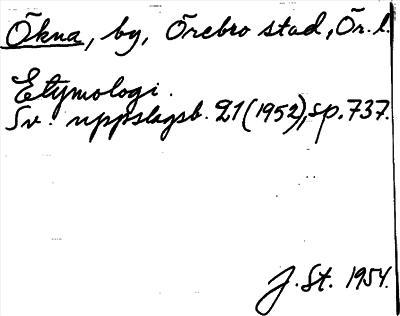 Ökna, by, Örebro stad, Ör. l.
Etymologi.
Sv. uppslagsb. 21 (1952), sp. 737.
J. St. 1954.